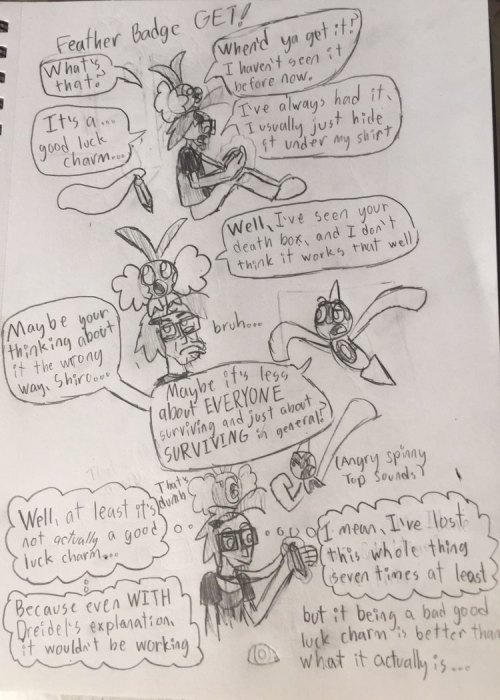 Feather Badge GET!
What's
that?
When'd ya get it?
I haven't seen it
before now.
It's a...
good luck
charm...
I've always had it,
I usually just hide
it under my shirt
Well, I've seen your
death box, and I don't
think it works that well
bruh...
Maybe your
thinking about
it the wrong
way, Shiro...
Maybe it's less
about EVERYONE
surviving and just about
SURVIVING in general?
(Angry Spinny
Top Sounds)
That's
dumb
Well, at least it's
not actually a good
luck charm...
I mean, I've lost
this whole thing
seven times at least
Because even WITH
Dreidel's explanation
it wouldn't be working
but it being a bad good
luck charm is better than
what it actually is...